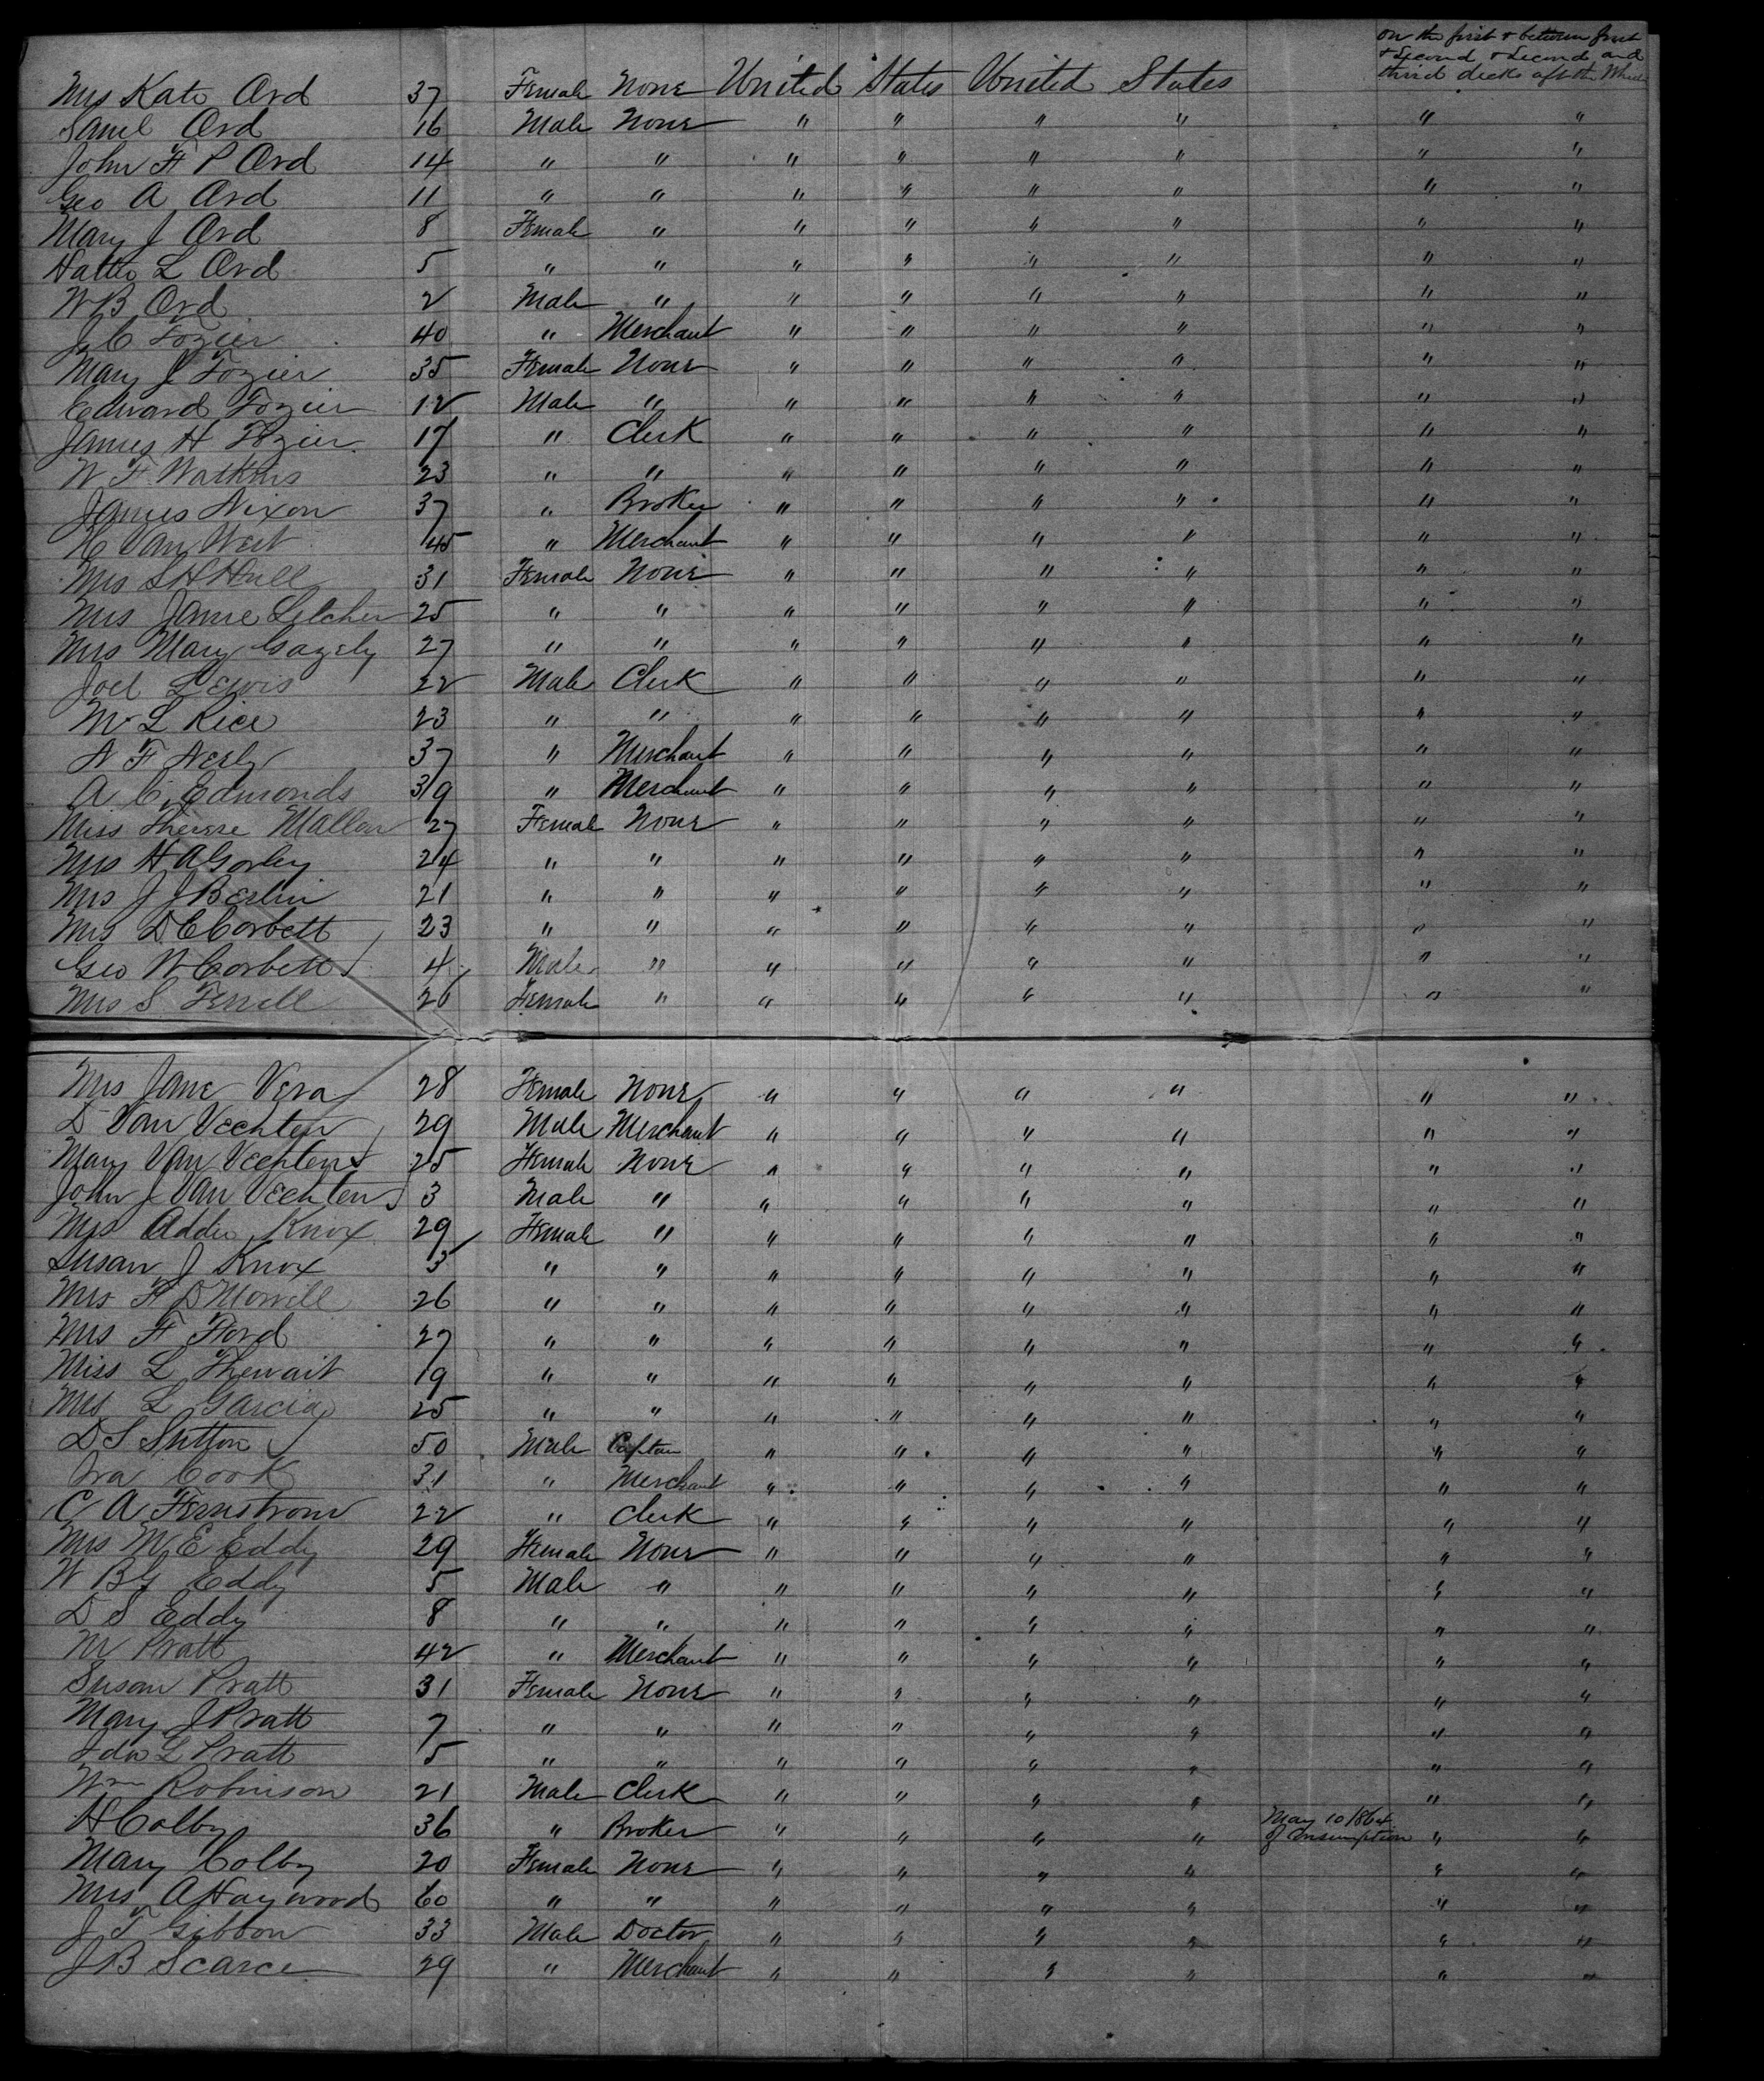 on the first & between first
& Second & Second and
third decks aft the Wheel
Mrs Kate Ord 37 Female None United States United States
Saml Ord 16 Male None " " " " " "
John F P Ord 14 " " " " " " " "
Geo A Ord 11 " " " " " " " "
Mary J Ord 8 Female " " " " " " "
Hattie L Ord 5 " " " " " " " "
W B Ord 2 Male " " " " " " "
J C Fozier 40 " Merchant " " " " " "
Mary J Fozier 35 Female None " " " " " "
Edward Fozier 12 Male " " " " " " "
James H Fozier 17 " Clerk " " " " " "
W F Watkins 23 " " " " " " " "
James Nixon 37 " Broker " " " " " "
Van West 45 " Merchant " " " " " "
Mrs S H Hull 31 Female None " " " " " "
Mrs Jane Letcher 25 " " " " " " " "
Mrs Mary Gazely 27 " " " " " " " "
Joel Lewis 22 Male Clerk " " " " " "
M L Rice 23 " " " " " " " "
N F Nesly 37 " Merchant " " " " " "
A C Edmonds 39 " Merchant " " " " " "
Miss Therese Mallon 27 Female None " " " " " "
Mrs H A Gorley 24 " " " " " " " "
Mrs J J Beslin 21 " " " " " " " "
Mrs D C Corbett 23 " " " " " " " "
Geo W Corbett 4 Male " " " " " " "
Mrs S Ferrell 26 Female " " " " " " "
Mrs Jane Vera 28 Female None " " " " " "
D Van Vechten 29 Male Merchant " " " " " "
Mary Van Vechten 25 Female None " " " " " "
John J Van Vechten 3 Male " " " " " " "
Mrs Addie Knox 29 Female " " " " " " "
Susan J Knox 3 " " " " " " " "
Mrs F D Morrell 26 " " " " " " " "
Mrs F Ford 27 " " " " " " " "
Miss L Thewait 19 " " " " " " " "
Mrs L Garcia 25 " " " " " " " "
D S Sutton 50 Male Captain " " " " " "
Ira Cook 31 " Merchant " " " " " "
C A Fernstrom 22 " Clerk " " " " " "
Mrs M E Eddy 29 Female None " " " " " "
W B G Eddy 5 Male " " " " " " "
D S Eddy 8 " " " " " " " "
M Pratt 42 " Merchant " " " " " "
Susan Pratt 31 Female None " " " " " "
Mary J Pratt 7 " " " " " " " "
Ida L Pratt 5 " " " " " " " "
Wm Robinson 21 Male Clerk " " " " " "
H Colby 36 " Broker " " " " May 10 1864 of Consumption " "
Mary Colby 20 Female None " " " " " "
Mrs A Haywood 60 " " " " " " " "
J T Gibbon 33 Male Doctor " " " " " "
J B Scarce 29 " Merchant " " " " " "